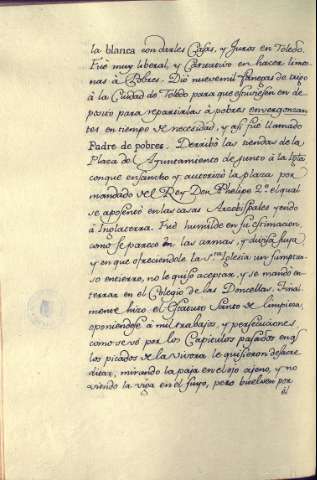 la blanca con darles Casas, y Juros en Toledo.
Fué muy liberal, y caritativo en hacer limos-
nas à Pobres. Dió nuevemil fanegas de trigo
à la Ciudad de Toledo para que estuviesen en de-
posito para repartirlas à pobres envergonzan-
tes en tiempo de necesidad, y asi fué llamado
Padre de pobres. Derribó las tiendas de la
Plaza de Ayuntamiento de junto à la Igla
conque ensancho y autorizó la plaza por
mandado del Rey Don Phelipe 2º el qual
se aposentó en las casas Arzobispales yendo
à Inglaterra. Fué humilde en su estimacion,
como se parece en las armas, y divisa suya
y en que ofreciendole la Sta Iglesia un sumptuo-
so entierro, no le quiso aceptar, y se mandó en-
terrar en el Colegio de las Doncellas. Final-
mente hizo el Estatuto Santo de limpieza,
oponiendose à mil trabajos, y persecuciones,
como se vé por los Capitulos pasados en q
los picados de la vivora le quisieron desacre-
ditar, mirando la paja en el ojo ageno, y no
viendo la viga en el suyo, pero buelven por
él